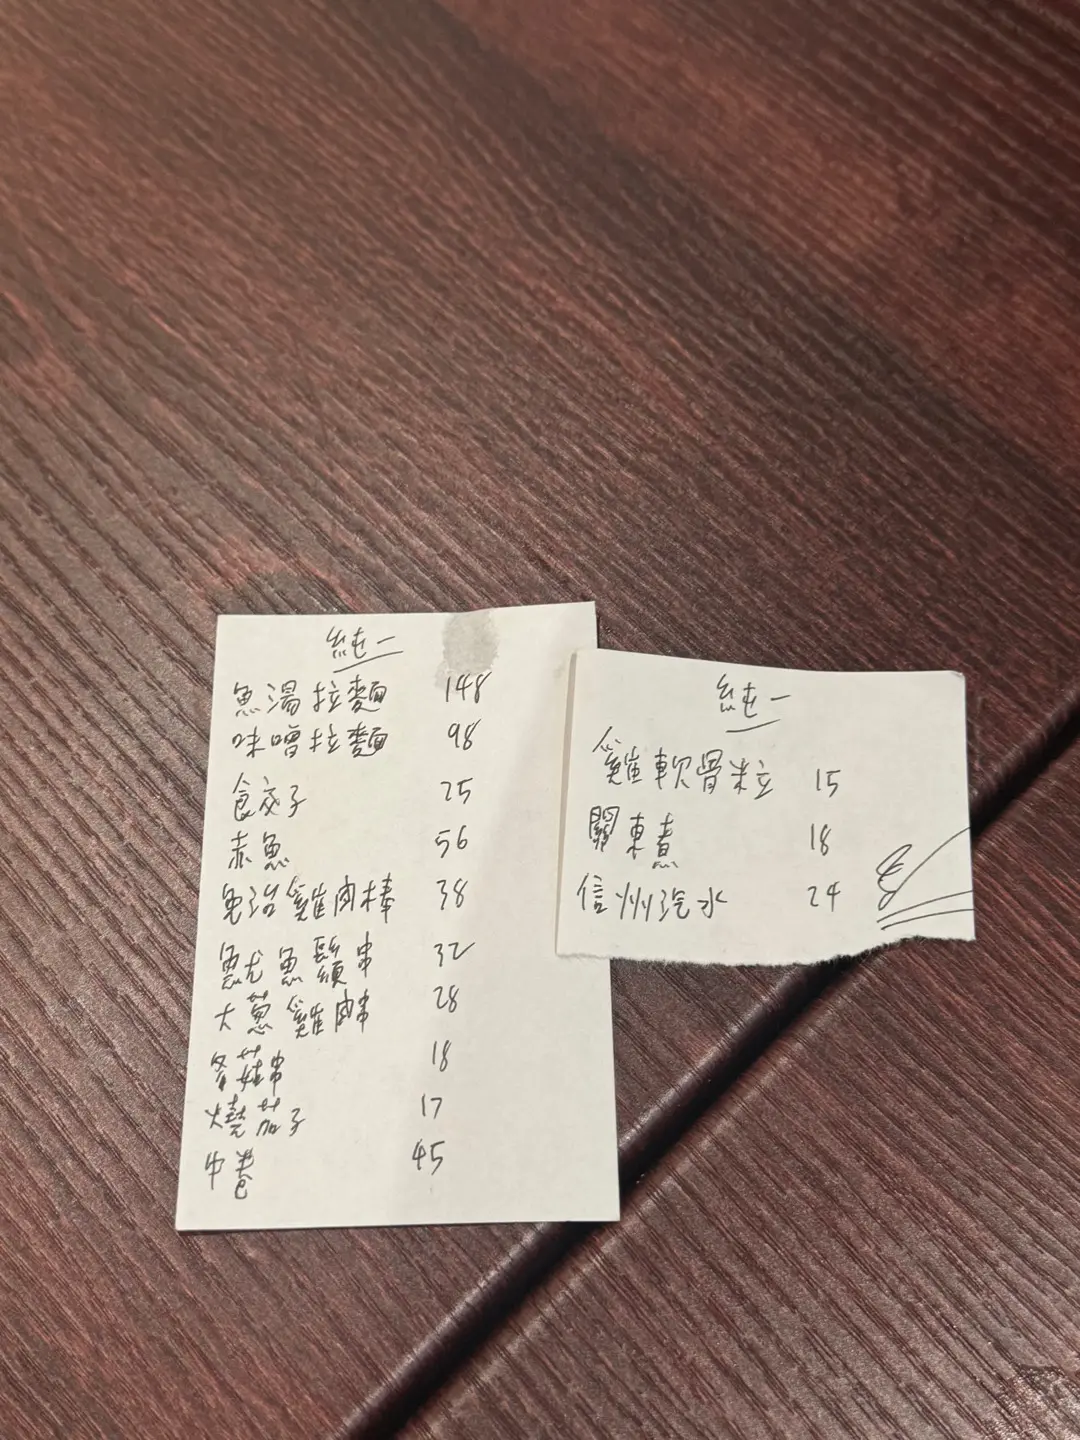 純一
魚湯拉麵 148
味噌拉麵 98
餃子 25
赤魚 56
免治雞肉棒 38
魷魚鬚串 32
大蔥雞肉串 28
冬菇串 18
燒茄子 17
中卷 45
純一
雞軟骨粒 15
關東煮 18
信州汽水 24